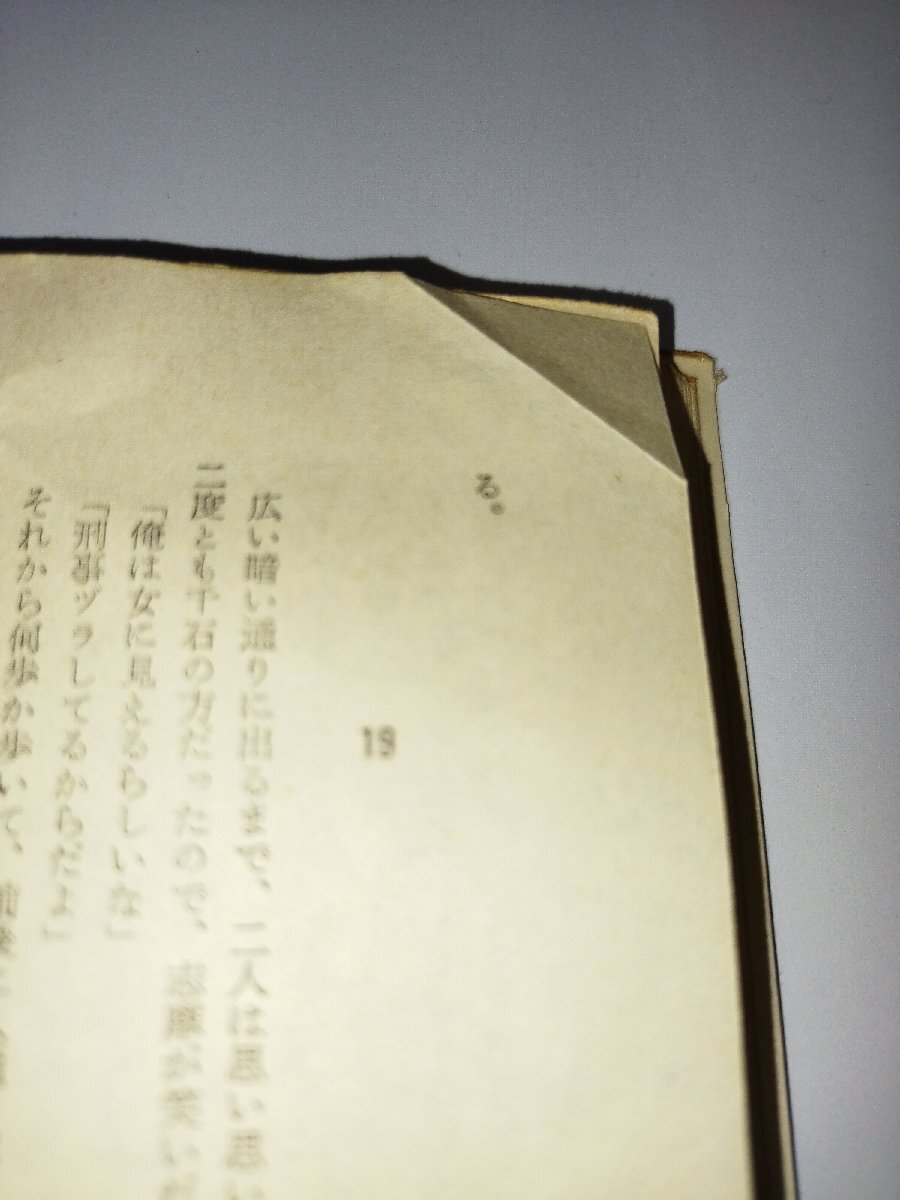 る。
19
広い暗い通りに出るまで、二人は思い思い
二度とも千石の方だったので、志摩が笑いだ
「俺は女に見えるらしいな」
「刑事ヅラしてるからだよ」
それから何歩か歩いて、前後に